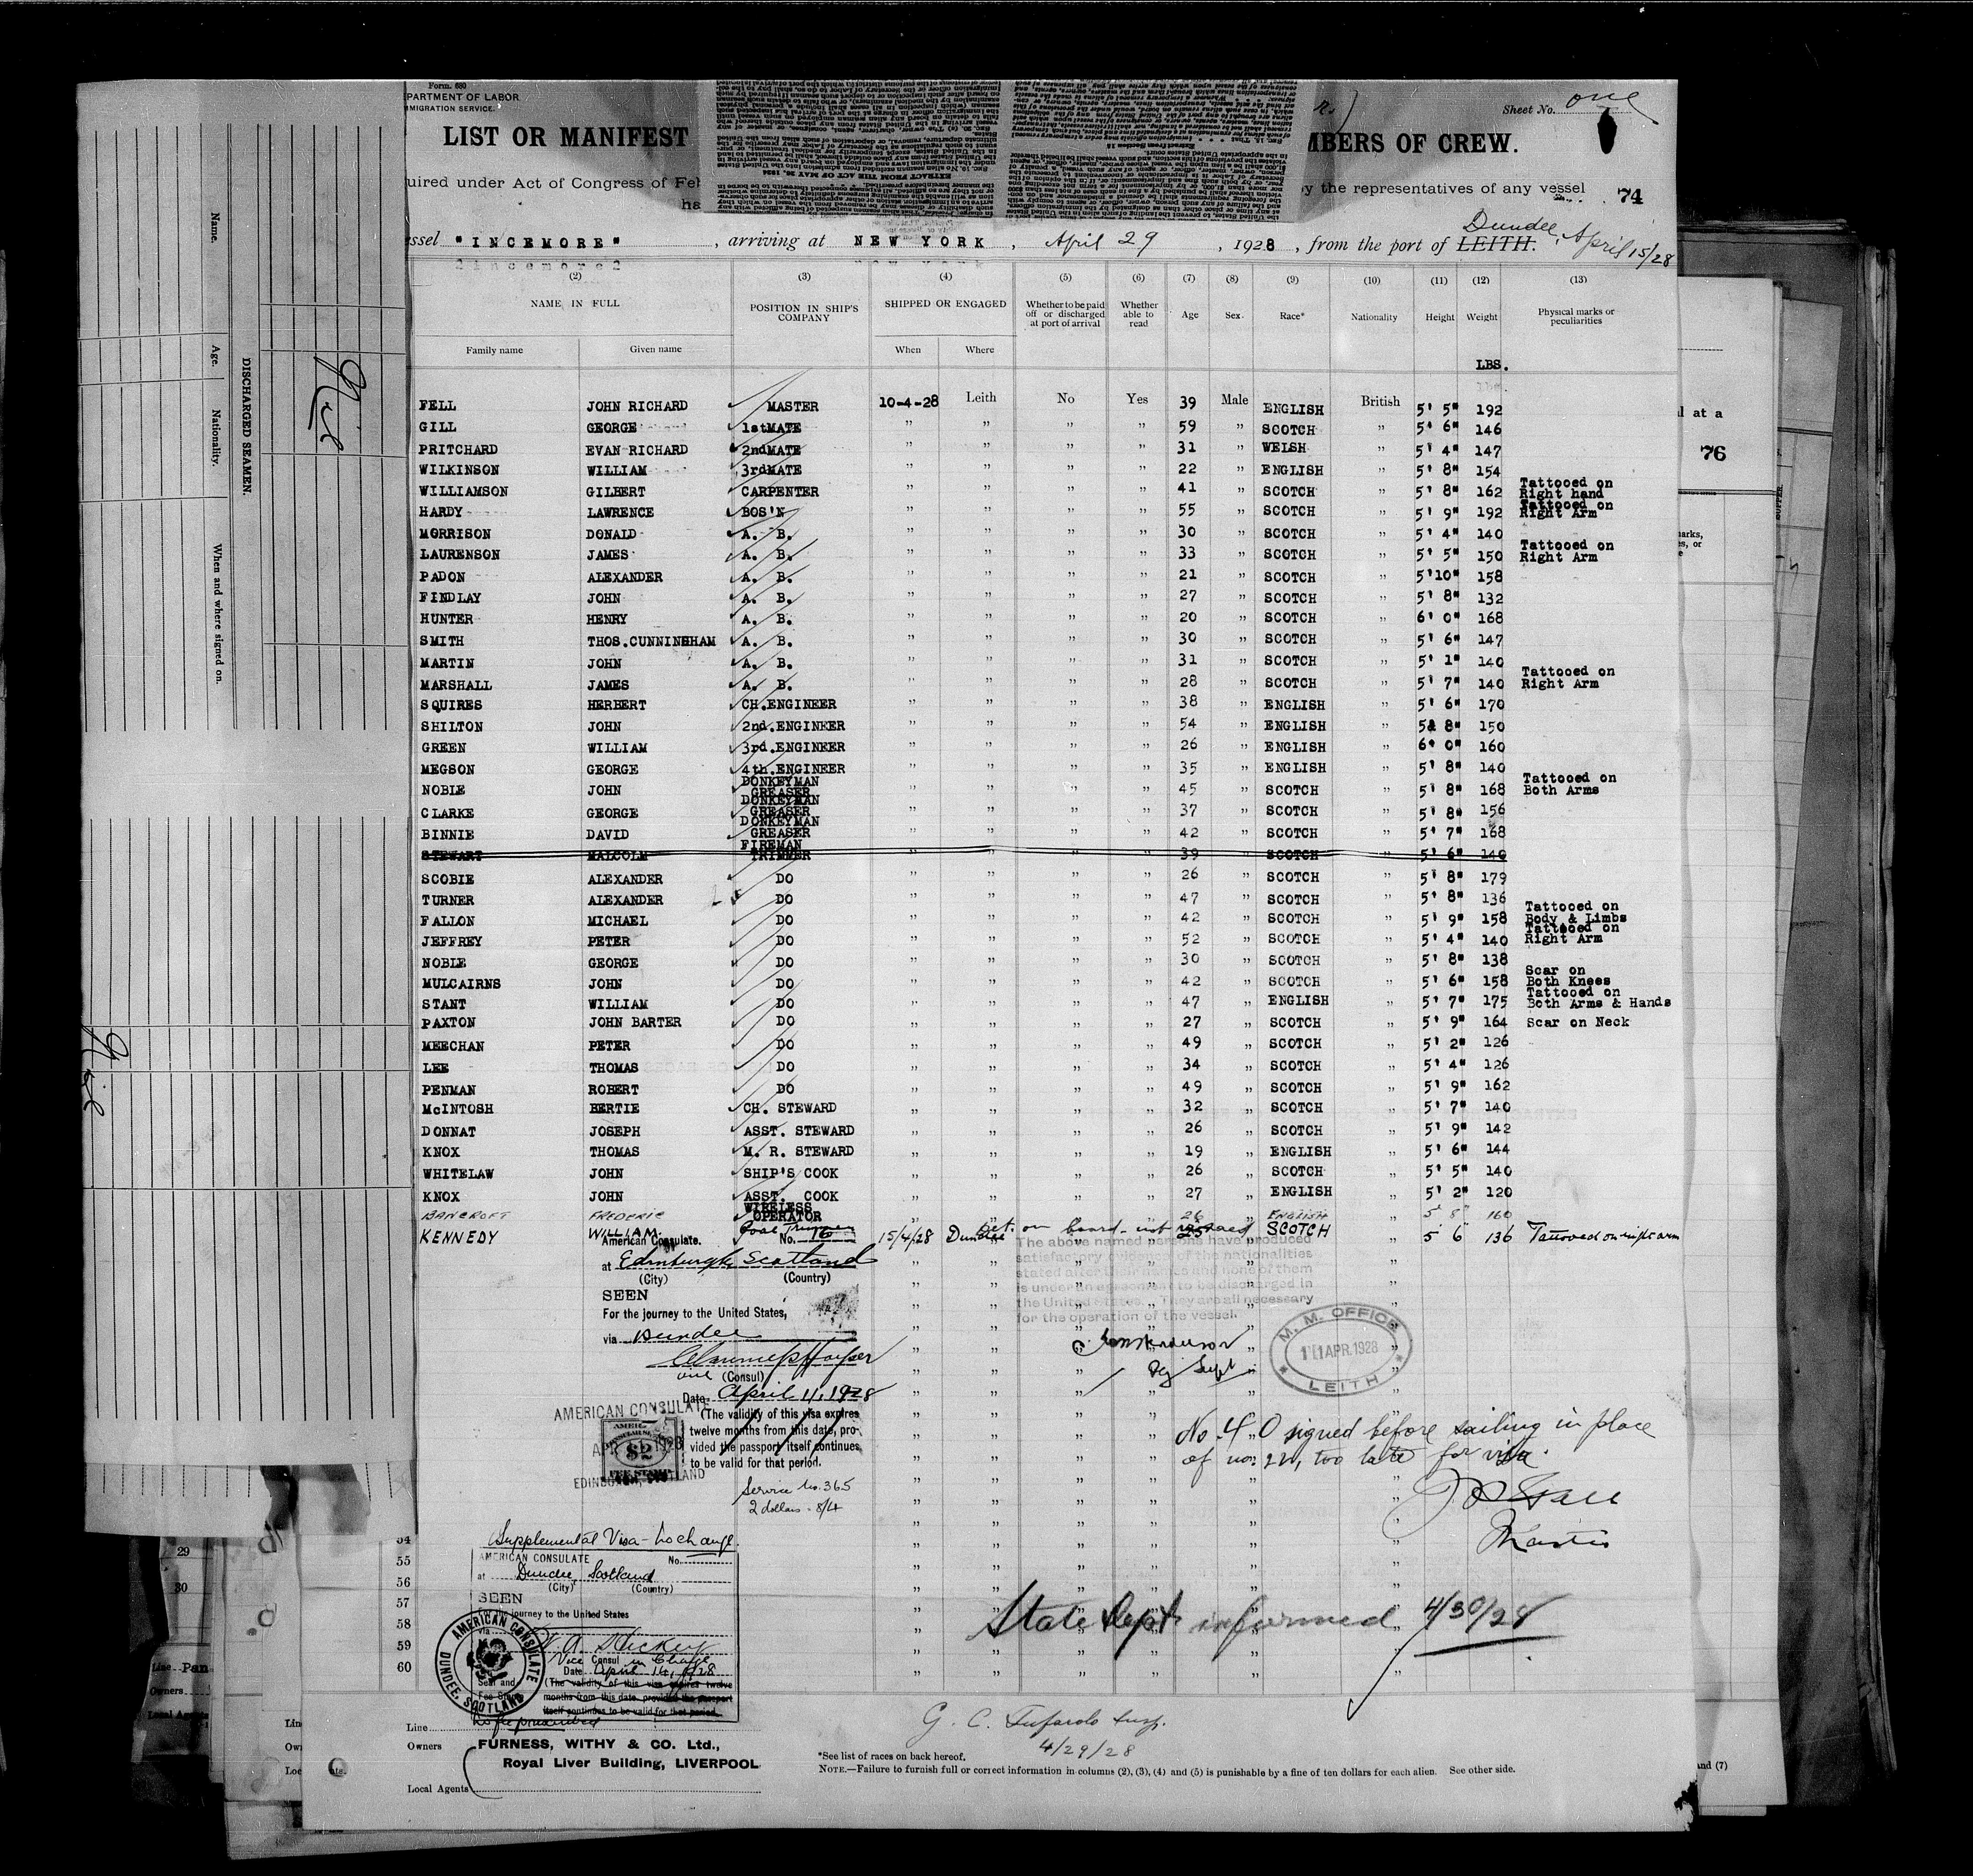 Form. 680
PARTMENT OF LABOR
MIGRATION SERVICE.
Sheet No. one
LIST OR MANIFEST
MBERS OF CREW.
uired under Act of Congress of Feb
y the representatives of any vessel
74
ha
EXTRACT FROM THE ACT OF MAY 26, 1924
essel "INCEMORE", arriving at NEW YORK, April 29, 1928, from the port of LEITH. Dundee, April 15/28
(2) (3) (4) (5) (6) (7) (8) (9) (10) (11) (12) (13)
NAME IN FULL POSITION IN SHIP'S COMPANY SHIPPED OR ENGAGED Whether to be paid off or discharged at port of arrival Whether able to read Age Sex. Race* Nationality Height Weight Physical marks or peculiarities
Family name Given name When Where
LBS.
FELL JOHN RICHARD MASTER 10-4-28 Leith No Yes 39 Male ENGLISH British 5' 5" 192
GILL GEORGE 1stMATE " " " " 59 " SCOTCH " 5' 6" 146
PRITCHARD EVAN RICHARD 2ndMATE " " " " 31 " WELSH " 5' 4" 147
WILKINSON WILLIAM 3rdMATE " " " " 22 " ENGLISH " 5' 8" 154
WILLIAMSON GILBERT CARPENTER " " " " 41 " SCOTCH " 5' 8" 162 Tattooed on Right hand
HARDY LAWRENCE BOS'N " " " " 55 " SCOTCH " 5' 9" 192 Tattooed on Right Arm
MORRISON DONALD A. B. " " " " 30 " SCOTCH " 5' 4" 140
LAURENSON JAMES A. B. " " " " 33 " SCOTCH " 5' 5" 150 Tattooed on Right Arm
PADON ALEXANDER A. B. " " " " 21 " SCOTCH " 5'10" 158
FINDLAY JOHN A. B. " " " " 27 " SCOTCH " 5' 8" 132
HUNTER HENRY A. B. " " " " 20 " SCOTCH " 6' 0" 168
SMITH THOS.CUNNINGHAM A. B. " " " " 30 " SCOTCH " 5' 6" 147
MARTIN JOHN A. B. " " " " 31 " SCOTCH " 5' 1" 140
MARSHALL JAMES A. B. " " " " 28 " SCOTCH " 5' 7" 140 Tattooed on Right Arm
SQUIRES HERBERT CH.ENGINEER " " " " 38 " ENGLISH " 5' 6" 170
SHILTON JOHN 2nd.ENGINEER " " " " 54 " ENGLISH " 5& 8" 150
GREEN WILLIAM 3rd.ENGINEER " " " " 26 " ENGLISH " 6' 0" 160
MEGSON GEORGE 4th.ENGINEER " " " " 35 " ENGLISH " 5' 8" 140
NOBLE JOHN DONKEYMAN GREASER " " " " 45 " SCOTCH " 5' 8" 168 Tattooed on Both Arms
CLARKE GEORGE DONKEYMAN GREASER " " " " 37 " SCOTCH " 5' 8" 156
BINNIE DAVID DONKEYMAN GREASER " " " " 42 " SCOTCH " 5' 7" 168
STEWART MALCOLM FIREMAN TRIMMER " " " " 39 " SCOTCH " 5' 6" 140
SCOBIE ALEXANDER DO " " " " 26 " SCOTCH " 5' 8" 179
TURNER ALEXANDER DO " " " " 47 " SCOTCH " 5' 8" 136
FALLON MICHAEL DO " " " " 42 " SCOTCH " 5' 9" 158 Tattooed on Body & Limbs
JEFFREY PETER DO " " " " 52 " SCOTCH " 5' 4" 140 Tattooed on Right Arm
NOBLE GEORGE DO " " " " 30 " SCOTCH " 5' 8" 138
MULCAIRNS JOHN DO " " " " 42 " SCOTCH " 5' 6" 158 Scar on Both Knees
STANT WILLIAM DO " " " " 47 " ENGLISH " 5' 7" 175 Tattooed on Both Arms & Hands
PAXTON JOHN BARTER DO " " " " 27 " SCOTCH " 5' 9" 164 Scar on Neck
MEECHAN PETER DO " " " " 49 " SCOTCH " 5' 2" 126
LEE THOMAS DO " " " " 34 " SCOTCH " 5' 4" 126
PENMAN ROBERT DO " " " " 49 " SCOTCH " 5' 9" 162
McINTOSH BERTIE CH. STEWARD " " " " 32 " SCOTCH " 5' 7" 140
DONNAT JOSEPH ASST. STEWARD " " " " 26 " SCOTCH " 5' 9" 142
KNOX THOMAS M. R. STEWARD " " " " 19 " ENGLISH " 5' 6" 144
WHITELAW JOHN SHIP'S COOK " " " " 26 " SCOTCH " 5' 5" 140
KNOX JOHN ASST. COOK " " " " 27 " ENGLISH " 5' 2" 120
BANCROFT FREDERIC WIRELESS OPERATOR " " " " 26 " ENGLISH " 5' 8" 160
KENNEDY WILLIAM. Coal Trimmer 15/4/28 Dundee Det. on board - not visaed 25 SCOTCH " 5 6" 136 Tattooed on right arm
American Consulate. No. 16
at Edinburgh, Scotland
(City) (Country)
SEEN
For the journey to the United States,
via Dundee
(Consul)
Date April 11, 1928
(The validity of this visa expires
twelve months from this date, pro-
vided the passport itself continues
to be valid for that period.
AMERICAN CONSULATE
$2
EDINBURGH, SCOTLAND
Service No. 365
2 dollars - 8/4
The above named persons have produced
satisfactory evidence of the nationalities
stated after their names and none of them
is under an agreement to be discharged in
the United States. They are all necessary
for the operation of the vessel.
M. M. OFFICE
11 APR. 1928
LEITH
No. 40 signed before sailing in place
of no. 22, too late for visa.
Master
State Dept informed 4/30/28
Supplemental Visa - No charge
AMERICAN CONSULATE No.
at Dundee, Scotland
(City) (Country)
SEEN
For the journey to the United States
via
Vice Consul in Charge
Date April 14, 1928
Seal and
Fee Stamp
(The validity of this visa expires twelve
months from this date, provided the passport
itself continues to be valid for that period.
No fee prescribed
AMERICAN CONSULATE
DUNDEE, SCOTLAND
54
55
56
57
58
59
60
Line
Owners FURNESS, WITHY & CO. Ltd.,
Royal Liver Building, LIVERPOOL
Local Agents
4/29/28
*See list of races on back hereof.
NOTE.—Failure to furnish full or correct information in columns (2), (3), (4) and (5) is punishable by a fine of ten dollars for each alien. See other side.
DISCHARGED SEAMEN.
Name. Age. Nationality. When and where signed on.
Nil
Nil
l at a
76
narks,
es, or
nd (7)
29
30
Line Pan
Owners
Local Agents